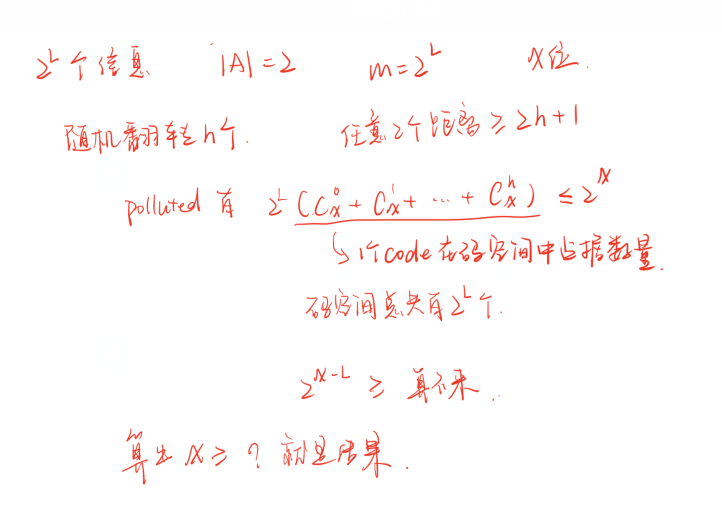 2^L个信息 |A|=2 m=2^L x位.
随机翻转h个. 任意2个距离 ≥ 2h+1
polluted 有 2^L (C_x^0 + C_x^1 + ··· + C_x^h) ≤ 2^x
↳ 1个code在码空间中占据数量.
码空间总共有2^L个.
2^{x-L} ≥ 算不来.
算出 x ≥ ? 就是结果.